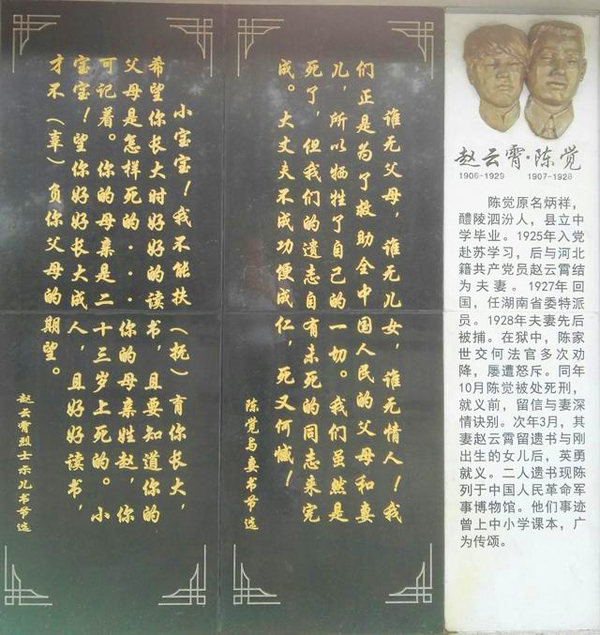 赵云霄·陈觉
1906-1929 1907-1928
陈觉原名炳祥，
醴陵泗汾人，县立中
学毕业。1925年入党
赴苏学习，后与河北
籍共产党员赵云霄结
为夫妻。1927年回
国，任湖南省委特派
员。1928年夫妻先后
被捕。在狱中，陈家
世交何法官多次劝
降，屡遭怒斥。同年
10月陈觉被处死刑，
就义前，留信与妻深
情诀别。次年3月，其
妻赵云霄留遗书与刚
出生的女儿后，英勇
就义。二人遗书现陈
列于中国人民革命军
事博物馆。他们事迹
曾上中小学课本，广
为传颂。
谁无父母，谁无儿女，谁无情人！我
们正是为了救助全中国人民的父母和妻
儿，所以牺牲了自己的一切。我们虽然是
死了，但我们的遗志自有未死的同志来完
成。大丈夫不成功便成仁，死又何憾！
陈觉与妻书节选
小宝宝！我不能扶（抚）育你长大，
希望你长大时好好的读书，且要知道你的
父母是怎样死的···你的母亲姓赵，你
可记着。你的母亲是二十三岁上死的。小
宝宝！望你好好长大成人，且好好读书，
才不（辜）负你父母的期望。
赵云霄烈士示儿书节选